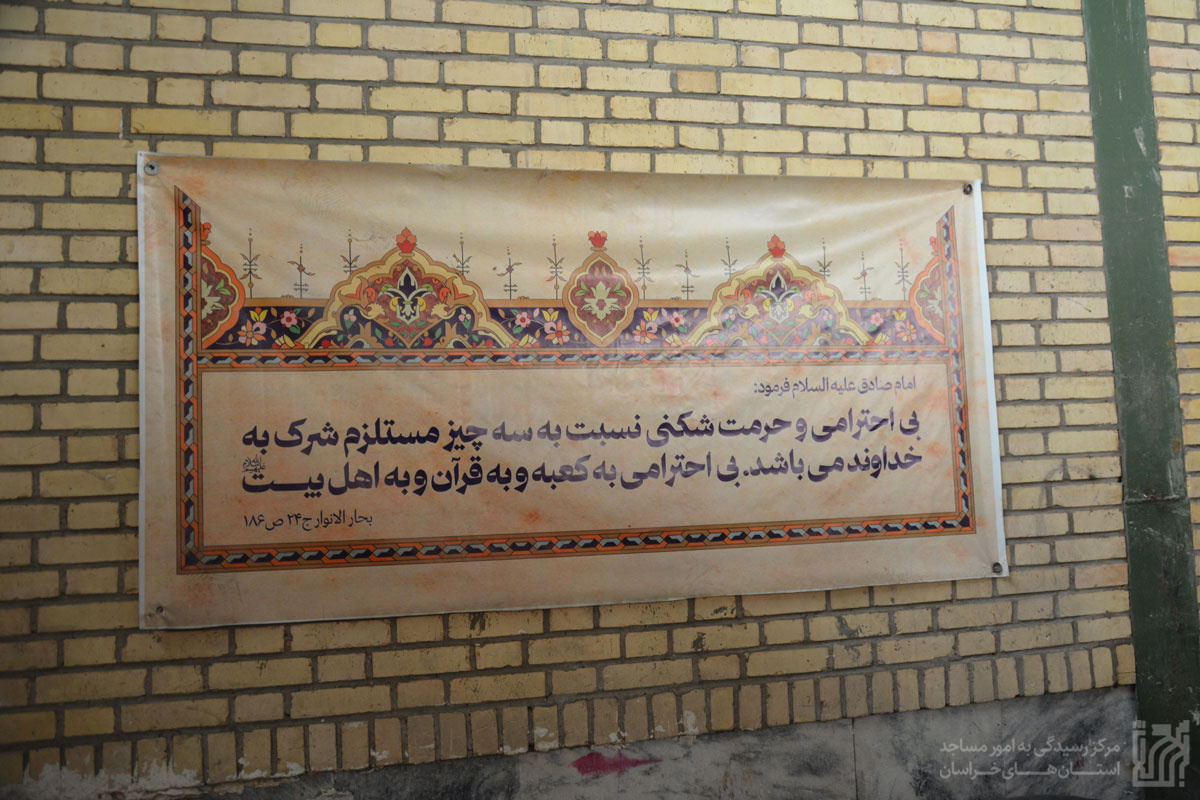 امام صادق علیه السلام فرمود:
بی احترامی و حرمت شکنی نسبت به سه چیز مستلزم شرک به
خداوند می باشد. بی احترامی به کعبه و به قرآن و به اهل بیت علیهم‌السلام
بحار الانوار ج۲۴ ص۱۸۶
مرکز رسیدگی به امور مساجد
استان‌های خراسان